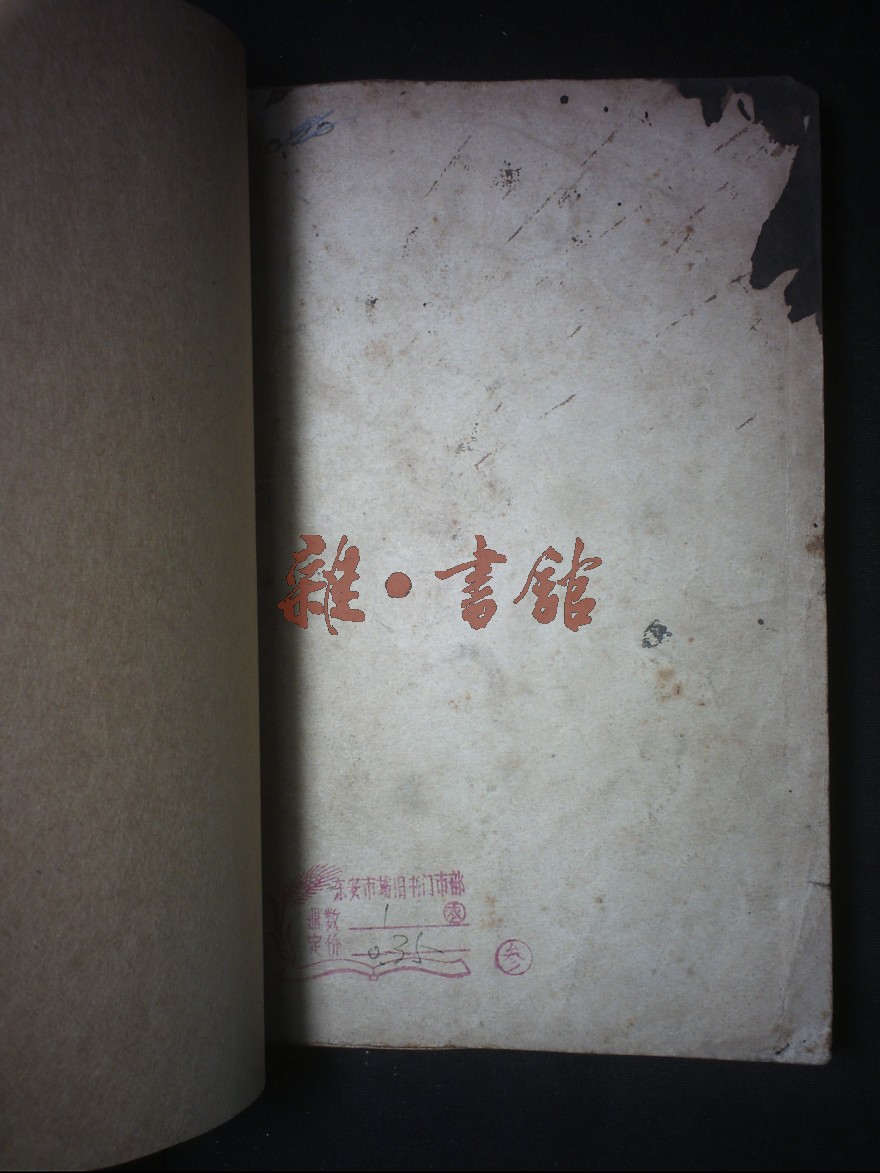 雜·書館
东安市场旧书门市部
册数 1
定价 0.35
参